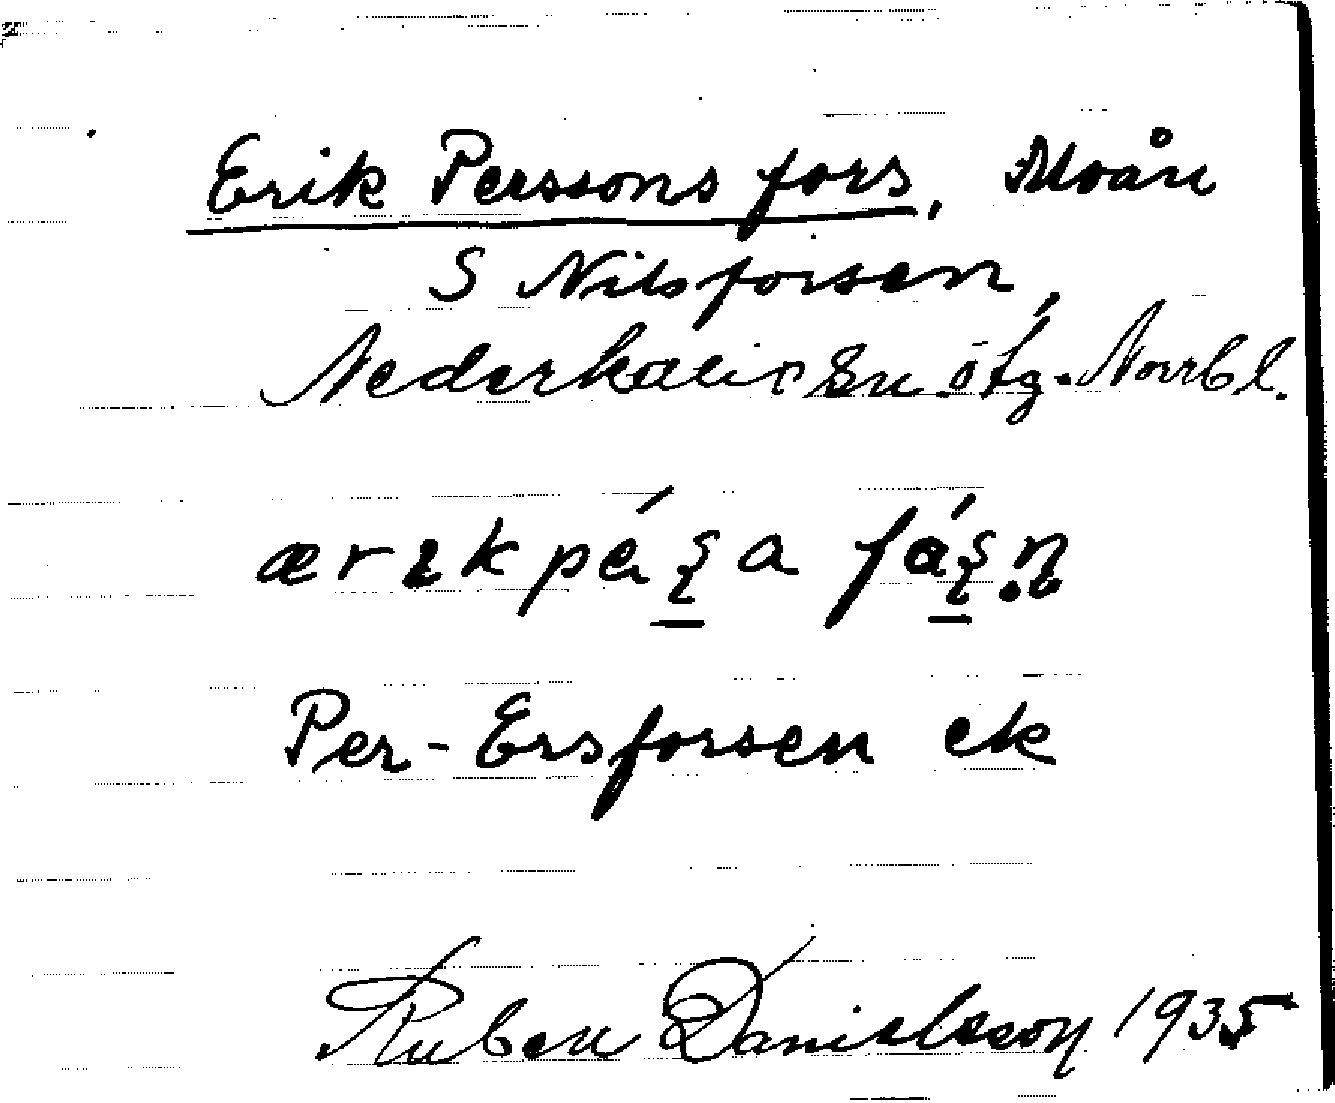 Erik Persons fors, Moån
S Nilsforsen,
Nederkalix sn ötg. Norrb l.
Per-Ersforsen ek
Ruben Danielsson 1935